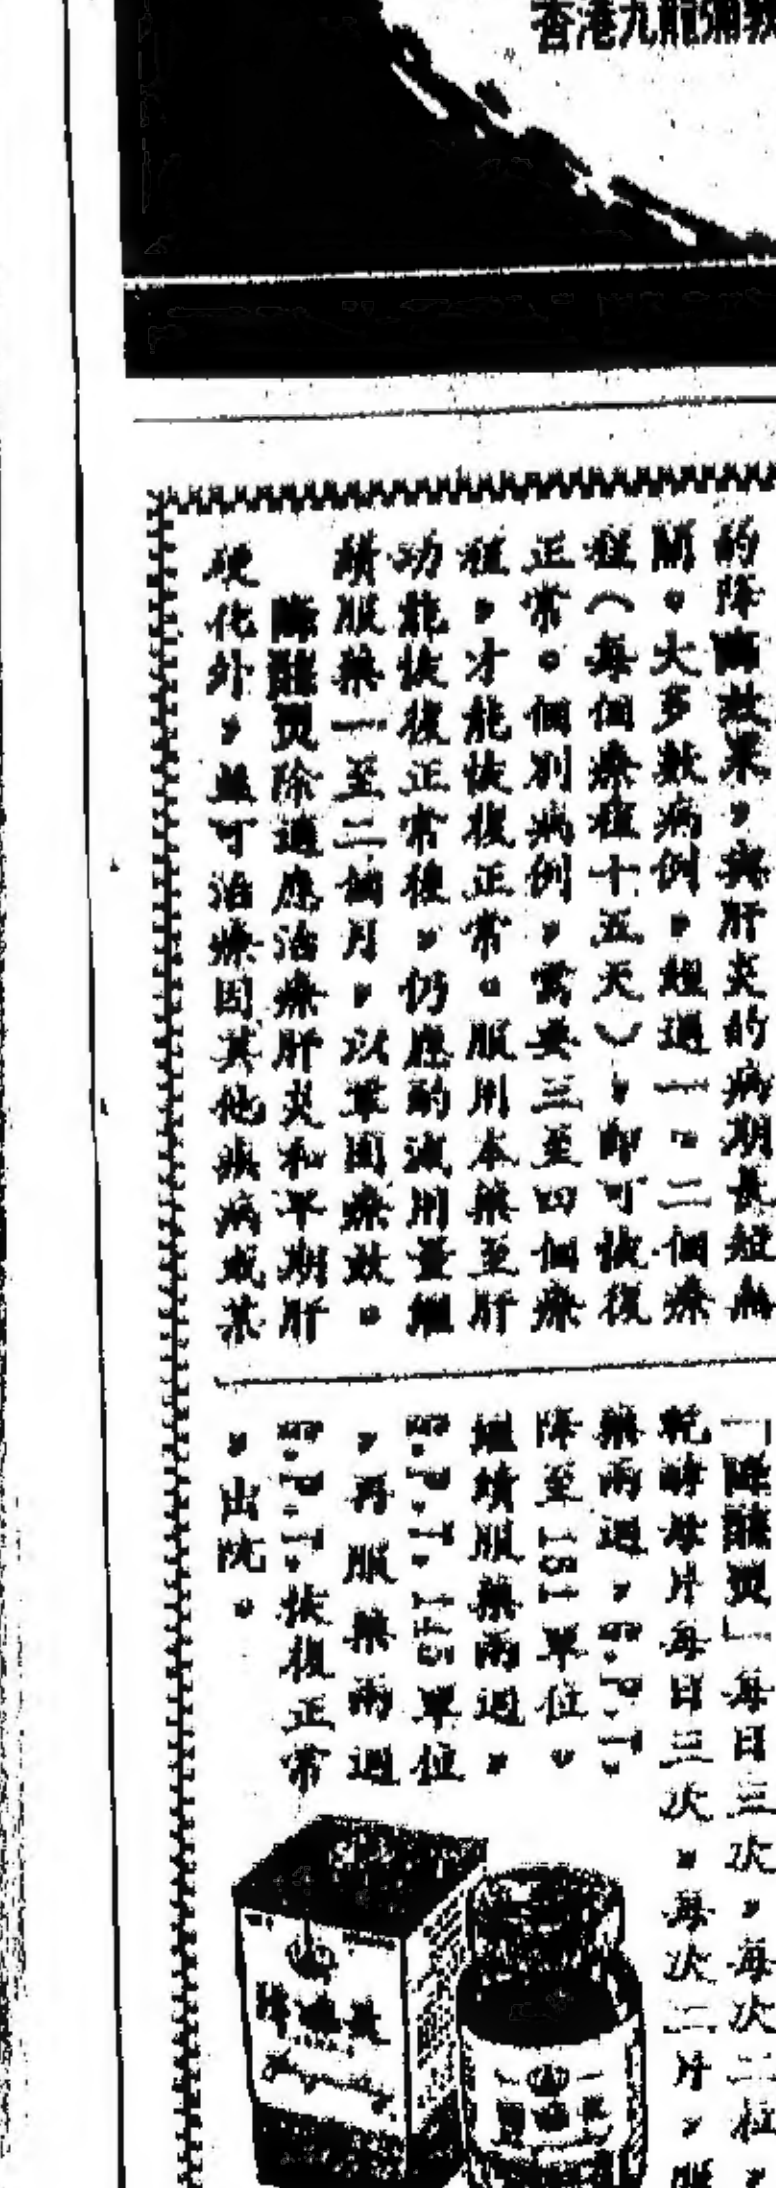 香港九龍彌敦
的降酶效果，與肝炎的病期長短無
關。大多數病例，經過一、二個療
程（每個療程十五天），即可恢復
正常。個別病例，需要三至四個療
程，才能恢復正常。服用本藥至肝
功能恢復正常後，仍應酌減用量繼
續服藥一至二個月，以鞏固療效。
降酶靈除適應治療肝炎和早期肝
硬化外，並可治療因其他疾病或某
「降酶靈」每日三次，每次二粒，
乾酵母片每日三次，每次二片，服
藥兩週，G.P.T.
降至151單位。
繼續服藥兩週，
G.P.T. 145單位
，再服藥兩週
G.P.T. 恢復正常
，出院。
降酶靈